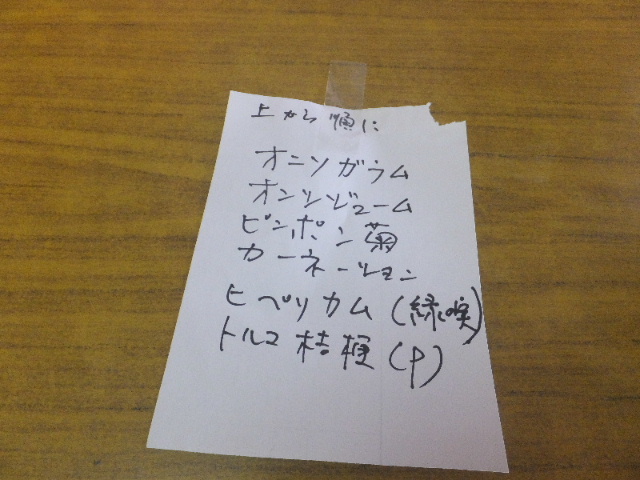 上から順に
オニソガラム
オンシジューム
ピンポン菊
カーネーション
ヒペリカム(緑の実)
トルコ桔梗(P)